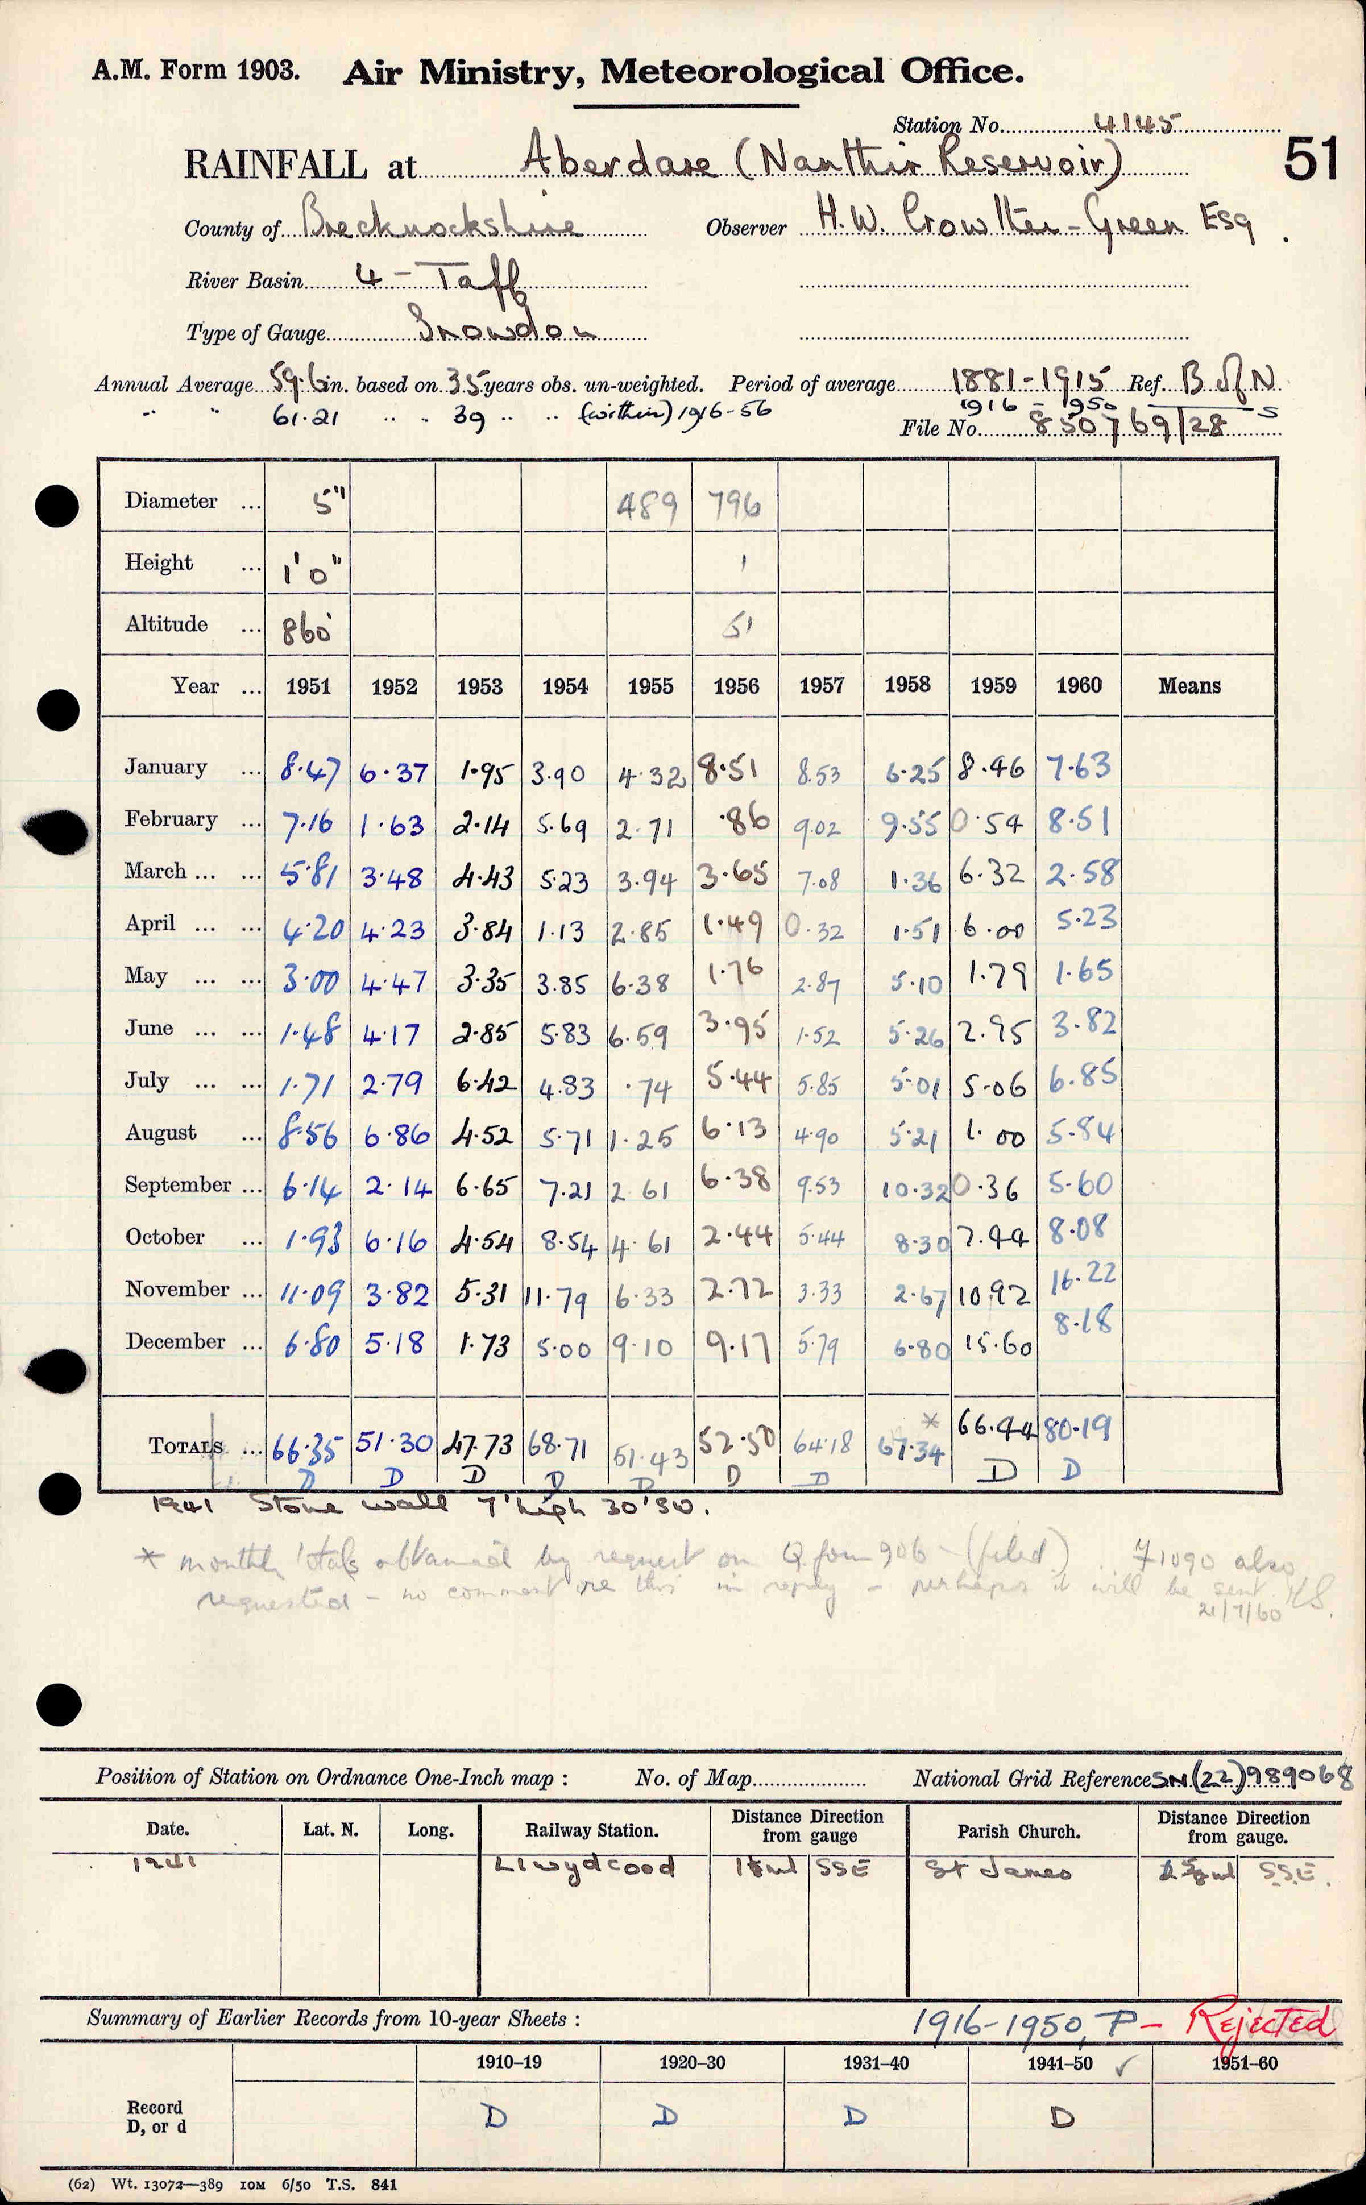 A.M. Form 1903. Air Ministry, Meteorological Office.
Station No. 4145
51
RAINFALL at Aberdare (Nanthir Reservoir)
County of Brecknockshire Observer H.W. Crowther-Green Esq.
River Basin 4 - Taff
Type of Gauge Snowdon
Annual Average 59.6 in. based on 35 years obs. un-weighted. Period of average 1881-1915 Ref. B of N
" " 61.21 " " 39 " " (within) 1916-56 1916 - 1950 S
File No. 850769/28
Diameter ... 5" 489 796
Height ... 1'0" 1
Altitude ... 860' 51
Year ... 1951 1952 1953 1954 1955 1956 1957 1958 1959 1960 Means
January ... 8.47 6.37 1.95 3.90 4.32 8.51 8.53 6.25 8.46 7.63
February ... 7.16 1.63 2.14 5.69 2.71 .86 9.02 9.55 0.54 8.51
March ... ... 5.81 3.48 4.43 5.23 3.94 3.65 7.08 1.36 6.32 2.58
April ... ... 4.20 4.23 3.84 1.13 2.85 1.49 0.32 1.51 6.00 5.23
May ... ... 3.00 4.47 3.35 3.85 6.38 1.76 2.87 5.10 1.79 1.65
June ... ... 1.48 4.17 2.85 5.83 6.59 3.95 1.52 5.26 2.95 3.82
July ... ... 1.71 2.79 6.42 4.83 .74 5.44 5.85 5.01 5.06 6.85
August ... 8.56 6.86 4.52 5.71 1.25 6.13 4.90 5.21 1.00 5.84
September ... 6.14 2.14 6.65 7.21 2.61 6.38 9.53 10.32 0.36 5.60
October ... 1.93 6.16 4.54 8.54 4.61 2.44 5.44 8.30 7.44 8.08
November ... 11.09 3.82 5.31 11.79 6.33 2.72 3.33 2.67 10.92 16.22
December ... 6.80 5.18 1.73 5.00 9.10 9.17 5.79 6.80 15.60 8.18
Totals ... 66.35 51.30 47.73 68.71 51.43 52.50 64.18 * 67.34 66.44 80.19
D D D D D D D D D
1941 Stone wall 7' high 30' SW.
* monthly totals obtained by request on Q form 906 - (filed). F1090 also
requested - no comment re this in reply - perhaps it will be sent.
21/7/60
Position of Station on Ordnance One-Inch map : No. of Map National Grid Reference SN (22) 989068
Date. Lat. N. Long. Railway Station. Distance Direction from gauge Parish Church. Distance Direction from gauge.
1941 Llwydcoed SSE St James SSE.
Summary of Earlier Records from 10-year Sheets : 1916-1950, P - Rejected
1910–19 1920–30 1931–40 1941–50 ✓ 1951–60
Record D, or d D D D D
(62) Wt. 13072—389 10M 6/50 T.S. 841